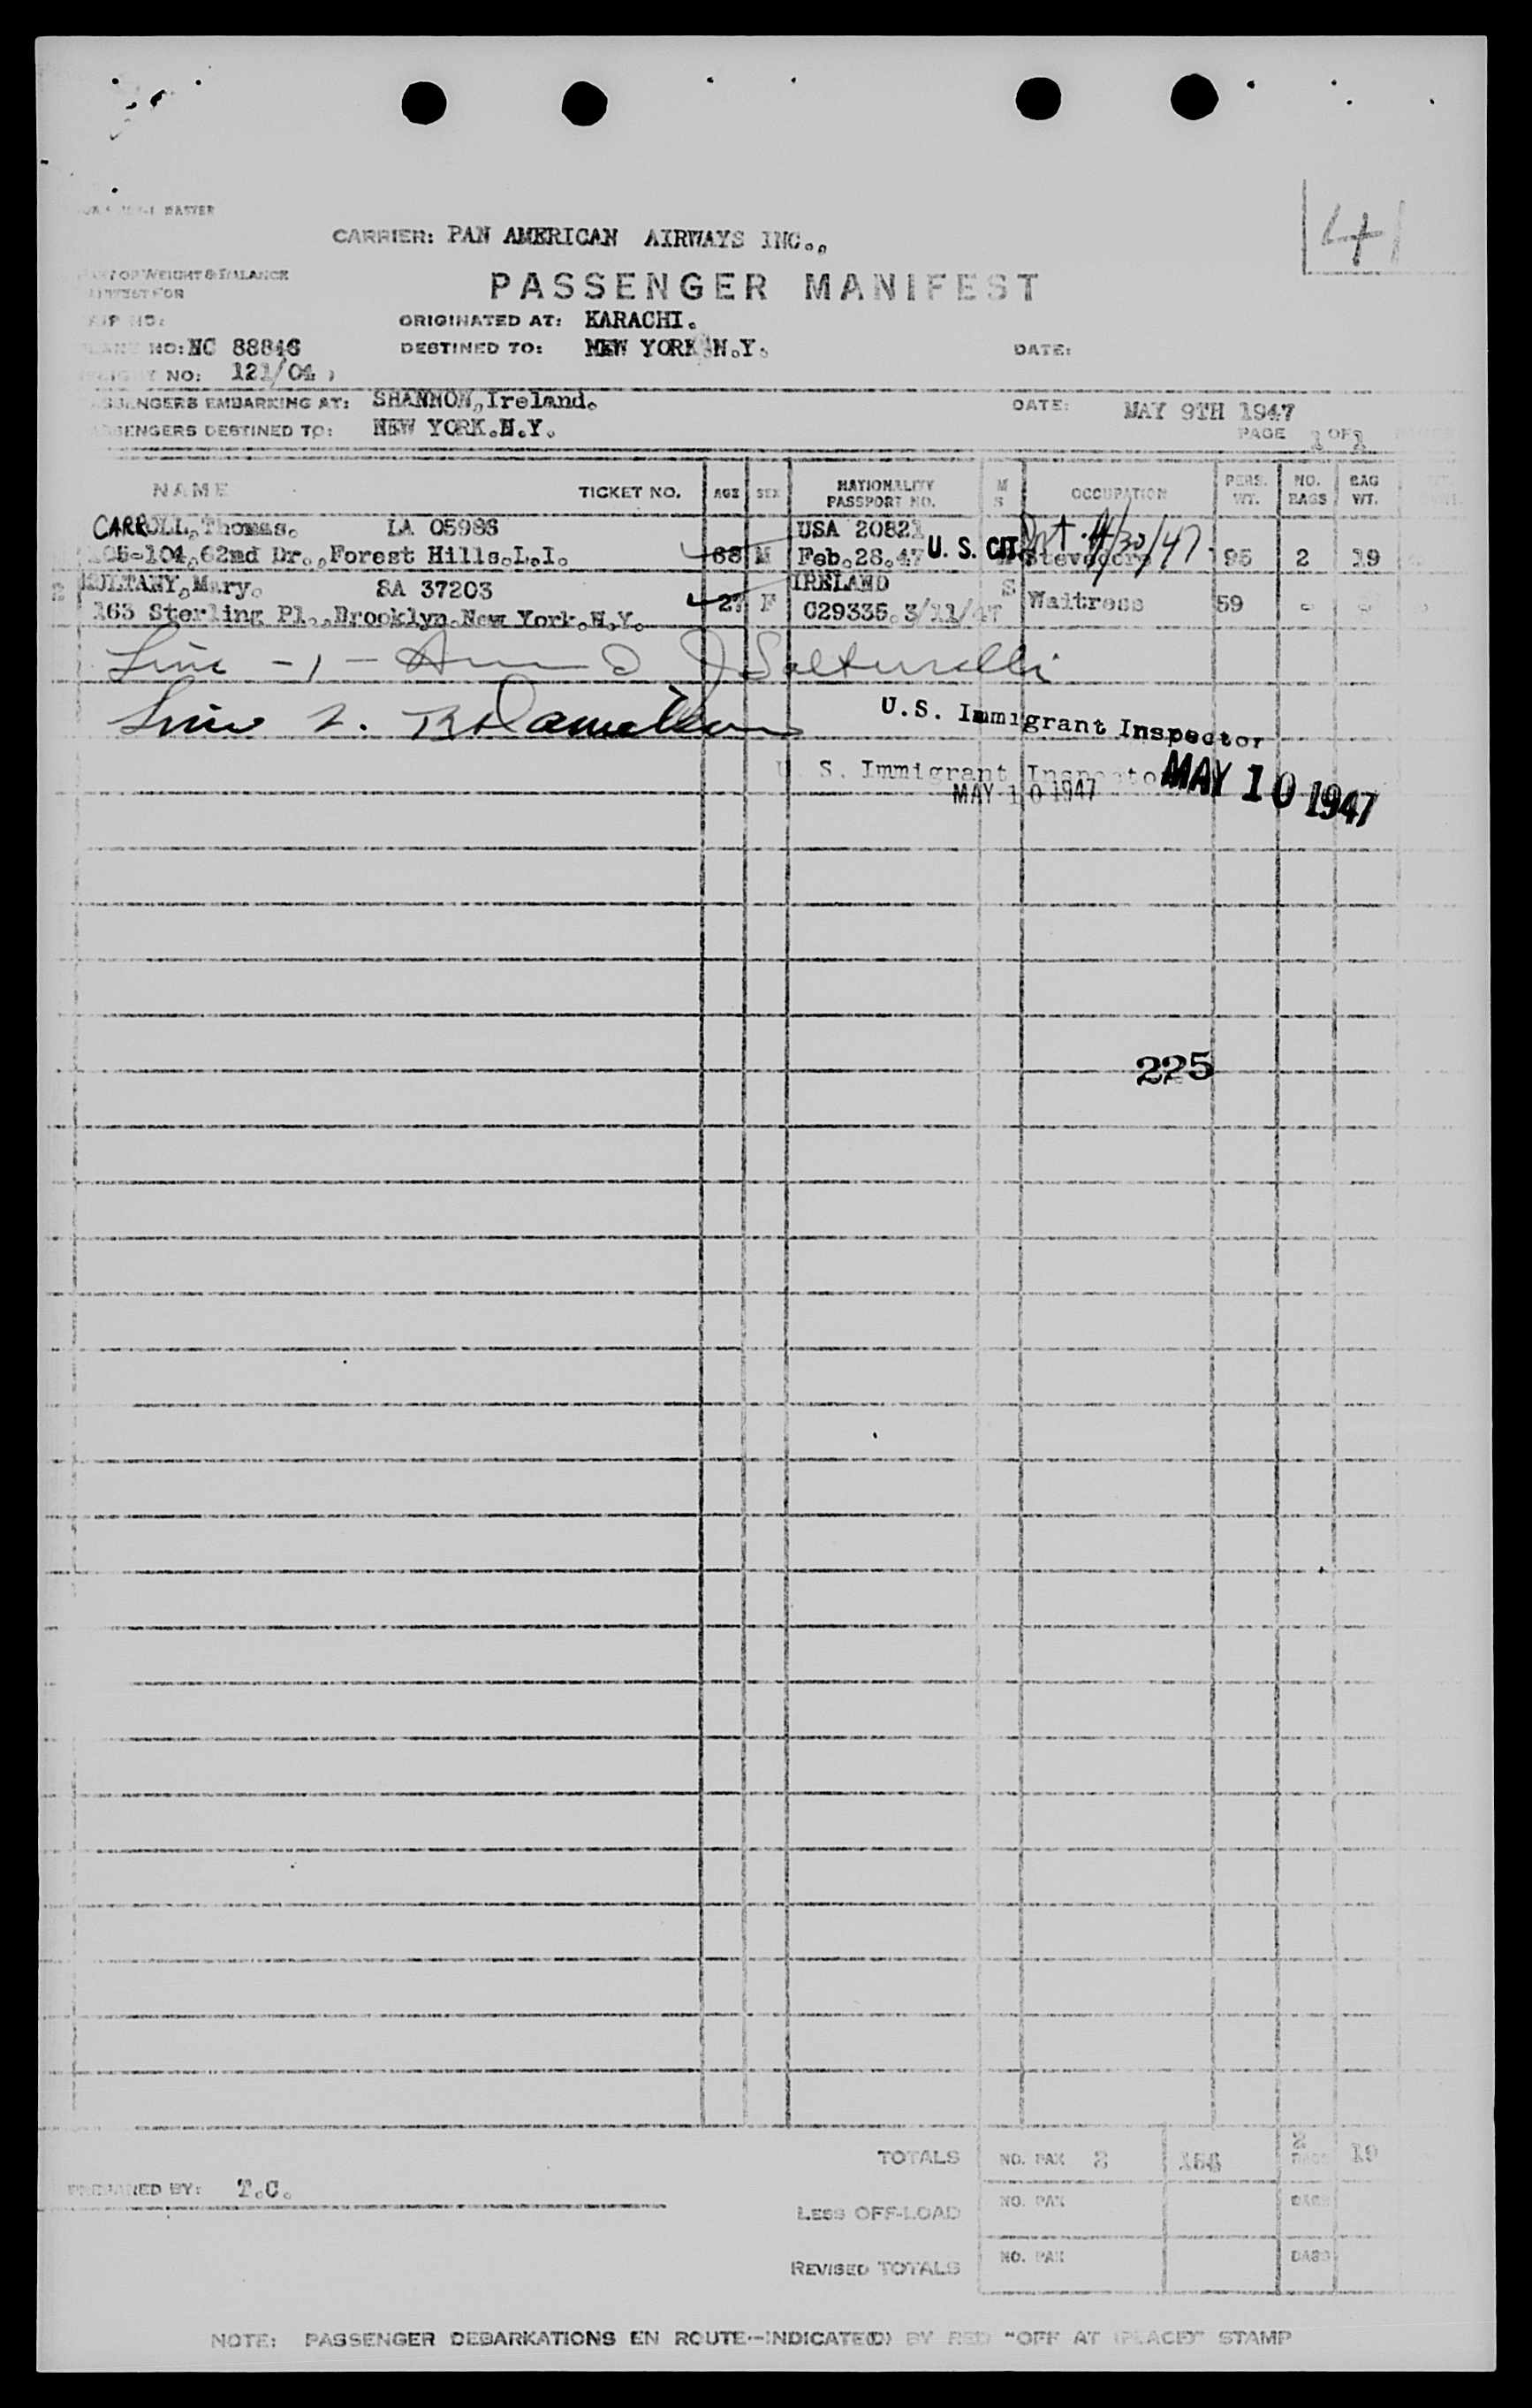 41
CARRIER: PAN AMERICAN AIRWAYS INC.,
WEIGHT & BALANCE
PASSENGER MANIFEST
FOR
NO:
ORIGINATED AT: KARACHI.
NO: NC 88846
DESTINED TO: NEW YORK N.Y.
DATE:
NO: 121/04
PASSENGERS EMBARKING AT: SHANNON, Ireland.
DATE: MAY 9TH 1947
PASSENGERS DESTINED TO: NEW YORK.N.Y.
PAGE 1 OF 1
NAME TICKET NO. AGE SEX NATIONALITY PASSPORT NO. M S OCCUPATION PERS. WT. NO. BAGS BAG WT.
CARROLL, Thomas. LA 05986 USA 20821 4/30/47
62nd Dr., Forest Hills.L.I. 68 M Feb.28.47 U. S. CIT. Stevedore 95 2 19
2 Mary. SA 37203 IRELAND S
163 Sterling Pl., Brooklyn. New York. N.Y. F C29335. 3/11/47 Waitress 59
Line - 1 -
Line 2.
U.S. Immigrant Inspector
U. S. Immigrant Inspector MAY 10 1947
MAY 10 1947
225
TOTALS NO. PAX 2 2 BAGS 19
PREPARED BY: T.C.
LESS OFF-LOAD NO. PAX BAGS
REVISED TOTALS NO. PAX BAGS
NOTE: PASSENGER DEBARKATIONS EN ROUTE--INDICATE(D) BY RED "OFF AT (PLACE)" STAMP